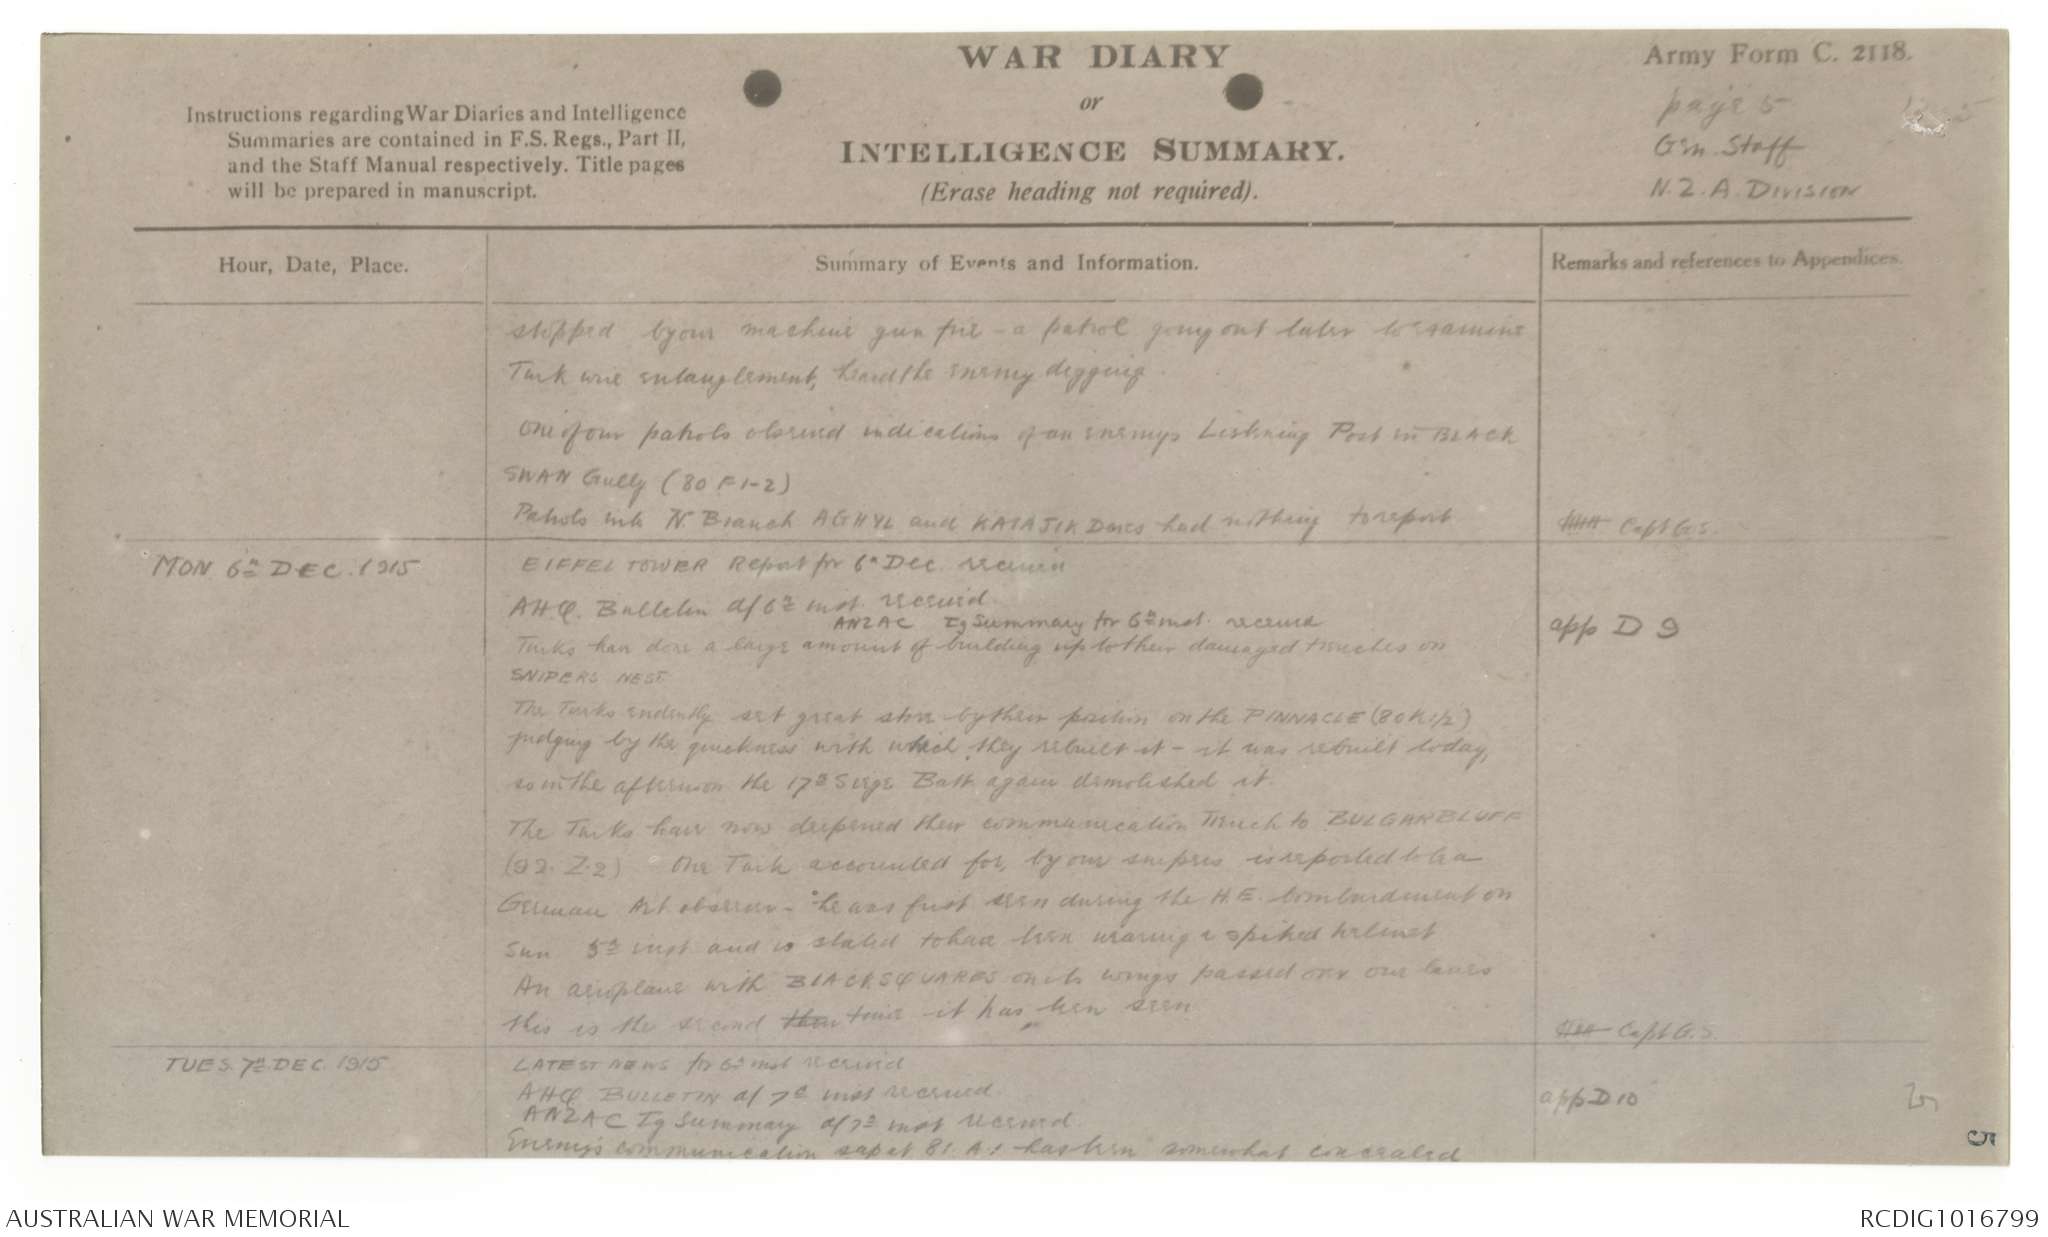 WAR DIARY
or
INTELLIGENCE SUMMARY.
(Erase heading not required).
Army Form C. 2118.
page 5
Gen. Staff
N.Z.A. DIVISION
Instructions regarding War Diaries and Intelligence
Summaries are contained in F.S. Regs., Part II,
and the Staff Manual respectively. Title pages
will be prepared in manuscript.
Hour, Date, Place.
Summary of Events and Information.
Remarks and references to Appendices.
stopped by our machine gun fire - a patrol going out later to examine
Turk wire entanglement, heard the enemy digging.
One of our patrols observed indications of an enemys Listening Post in BLACK
SWAN Gully (80 F 1-2)
Patrols into N. Branch AGHYL and KAIAJIK Deres had nothing to report
Capt G.S.
MON 6th DEC. 1915
EIFFEL TOWER Report for 6th Dec. received
AHQ. Bulletin d/ 6th inst. received
ANZAC Ig Summary for 6th inst. received
app D 9
Turks have done a large amount of building up to their damaged trenches on
SNIPERS NEST
The Turks evidently set great store by their position on the PINNACLE (80 K 1/2)
judging by the quickness with which they rebuilt it - it was rebuilt today,
so in the afternoon the 17th Siege Batt again demolished it.
The Turks have now deepened their communication Trench to BULGAR BLUFF
(92. Z.2) One Turk accounted for, by our snipers is reported to be a
German Art observer - he was first seen during the H.E. bombardment on
Sun 5th inst and is stated to have been wearing a spiked helmet
An aeroplane with BLACK SQUARES on its wings passed over our lines
this is the second time it has been seen
Capt G.S.
TUES. 7th DEC. 1915
LATEST NEWS for 6th inst received
AHQ BULLETIN d/ 7th inst received.
ANZAC Ig Summary d/ 7th inst received
app D 10
Enemy's communication sap at 81. A.1 has been somewhat concealed
5
AUSTRALIAN WAR MEMORIAL
RCDIG1016799